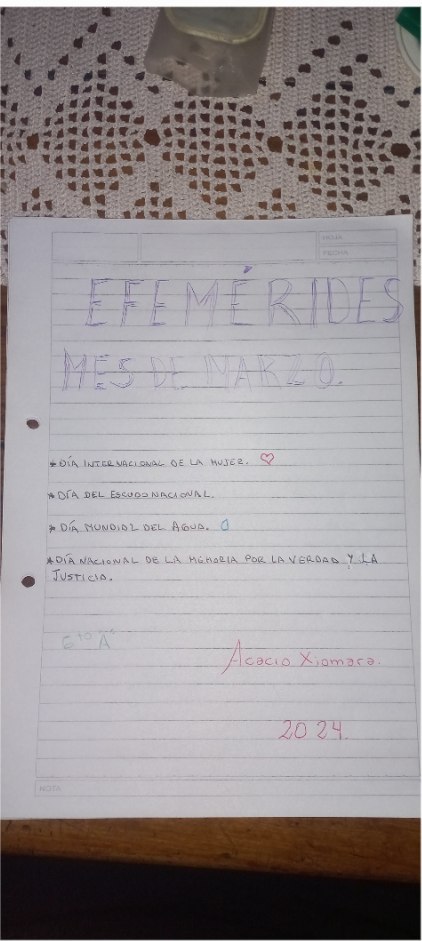 HOJA
FECHA
EFEMÉRIDES
MES DE MARZO.
* DÍA INTERNACIONAL DE LA MUJER.
* DÍA DEL ESCUDO NACIONAL.
* DÍA MUNDIAL DEL AGUA.
* DÍA NACIONAL DE LA MEMORIA POR LA VERDAD Y LA
JUSTICIA.
6to "A"
Acacio Xiomara.
2024.
NOTA